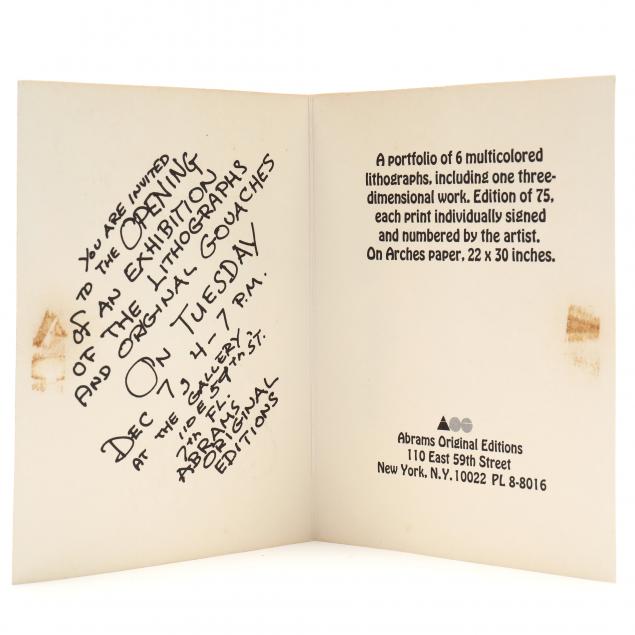 YOU ARE INVITED
TO THE OPENING
OF AN EXHIBITION
OF THE LITHOGRAPHS
AND ORIGINAL GOUACHES
ON TUESDAY
DEC 7, 4-7 P.M.
AT THE GALLERY,
110 E 59th ST.
7th FL.
ABRAMS
ORIGINAL
EDITIONS
A portfolio of 6 multicolored
lithographs, including one three-
dimensional work. Edition of 75,
each print individually signed
and numbered by the artist.
On Arches paper, 22 x 30 inches.
Abrams Original Editions
110 East 59th Street
New York, N.Y. 10022 PL 8-8016